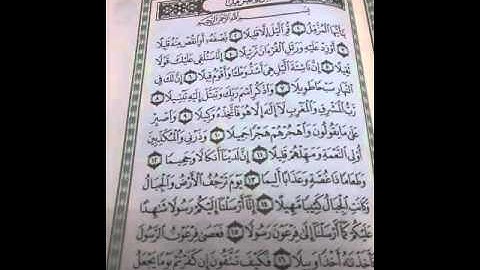 بِسْمِ ٱللَّهِ ٱلرَّحْمَٰنِ ٱلرَّحِيمِ
يَٰٓأَيُّهَا ٱلْمُزَّمِّلُ ١ قُمِ ٱلَّيْلَ إِلَّا قَلِيلًا ٢ نِّصْفَهُۥٓ أَوِ ٱنقُصْ مِنْهُ قَلِيلًا
٣ أَوْ زِدْ عَلَيْهِ وَرَتِّلِ ٱلْقُرْءَانَ تَرْتِيلًا ٤ إِنَّا سَنُلْقِى عَلَيْكَ قَوْلًا
ثَقِيلًا ٥ إِنَّ نَاشِئَةَ ٱلَّيْلِ هِىَ أَشَدُّ وَطْـًٔا وَأَقْوَمُ قِيلًا ٦ إِنَّ لَكَ فِى
ٱلنَّهَارِ سَبْحًا طَوِيلًا ٧ وَٱذْكُرِ ٱسْمَ رَبِّكَ وَتَبَتَّلْ إِلَيْهِ تَبْتِيلًا ٨
رَّبُّ ٱلْمَشْرِقِ وَٱلْمَغْرِبِ لَآ إِلَٰهَ إِلَّا هُوَ فَٱتَّخِذْهُ وَكِيلًا ٩ وَٱصْبِرْ
عَلَىٰ مَا يَقُولُونَ وَٱهْجُرْهُمْ هَجْرًا جَمِيلًا ١٠ وَذَرْنِى وَٱلْمُكَذِّبِينَ
أُو۟لِى ٱلنَّعْمَةِ وَمَهِّلْهُمْ قَلِيلًا ١١ إِنَّ لَدَيْنَآ أَنكَالًا وَجَحِيمًا ١٢
وَطَعَامًا ذَا غُصَّةٍ وَعَذَابًا أَلِيمًا ١٣ يَوْمَ تَرْجُفُ ٱلْأَرْضُ وَٱلْجِبَالُ
وَكَانَتِ ٱلْجِبَالُ كَثِيبًا مَّهِيلًا ١٤ إِنَّآ أَرْسَلْنَآ إِلَيْكُمْ رَسُولًا شَٰهِدًا
عَلَيْكُمْ كَمَآ أَرْسَلْنَآ إِلَىٰ فِرْعَوْنَ رَسُولًا ١٥ فَعَصَىٰ فِرْعَوْنُ ٱلرَّسُولَ
فَأَخَذْنَٰهُ أَخْذًا وَبِيلًا ١٦ فَكَيْفَ تَتَّقُونَ إِن كَفَرْتُمْ يَوْمًا يَجْعَلُ